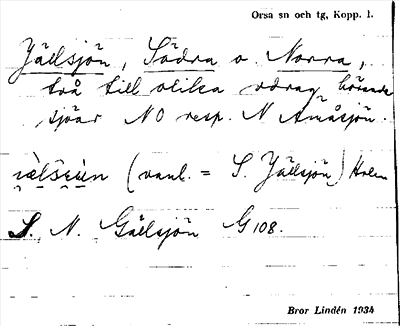 Orsa sn och tg, Kopp. l.
Jällsjön, Södra o. Norra,
två till olika vdrag hörande
sjöar NO resp. N Amåsjön.
(vanl. = S. Jällsjön) Holm
S. N. Gällsjön G 108.
Bror Lindén 1934